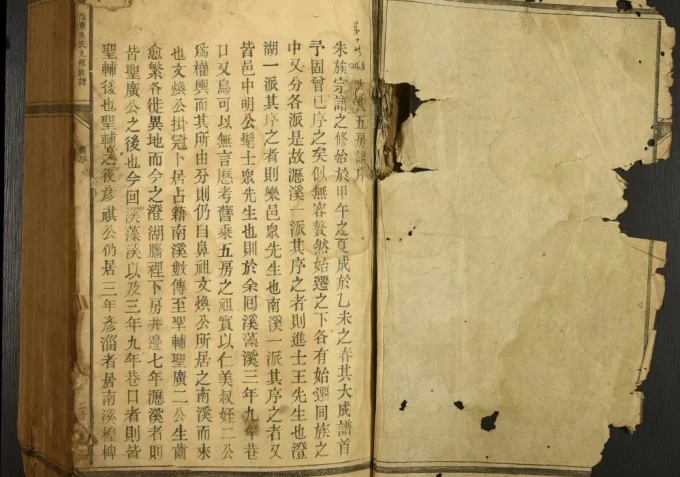 五房譜序
朱族宗譜之修始於甲午之夏成於乙未之春其大成譜首
予固曾已序之矣似無容贅然始遷之下各有始遷同族之
中又分各派是故瀝溪一派其序之者則進士王先生也澄
湖一派其序之者則樂邑眾先生也南溪一派其序之者又
皆邑中明公髦士眾先生也則於余回溪藻溪三年九年巷
口又烏可以無言歷考舊乘五房之祖實以仁美叔姪二公
為權輿而其所由分則仍自鼻祖文煥公所居之南溪而來
也文煥公掛冠卜居占籍南溪數傳至聖輔聖廣二公生齒
愈繁各徙異地而今之澄湖裡下房井邊七年瀝溪者則
皆聖廣公之後也今回溪藻溪以及三年九年巷口者則皆
聖輔後也聖輔之後彥祺公仍居三年彥淄者居南溪